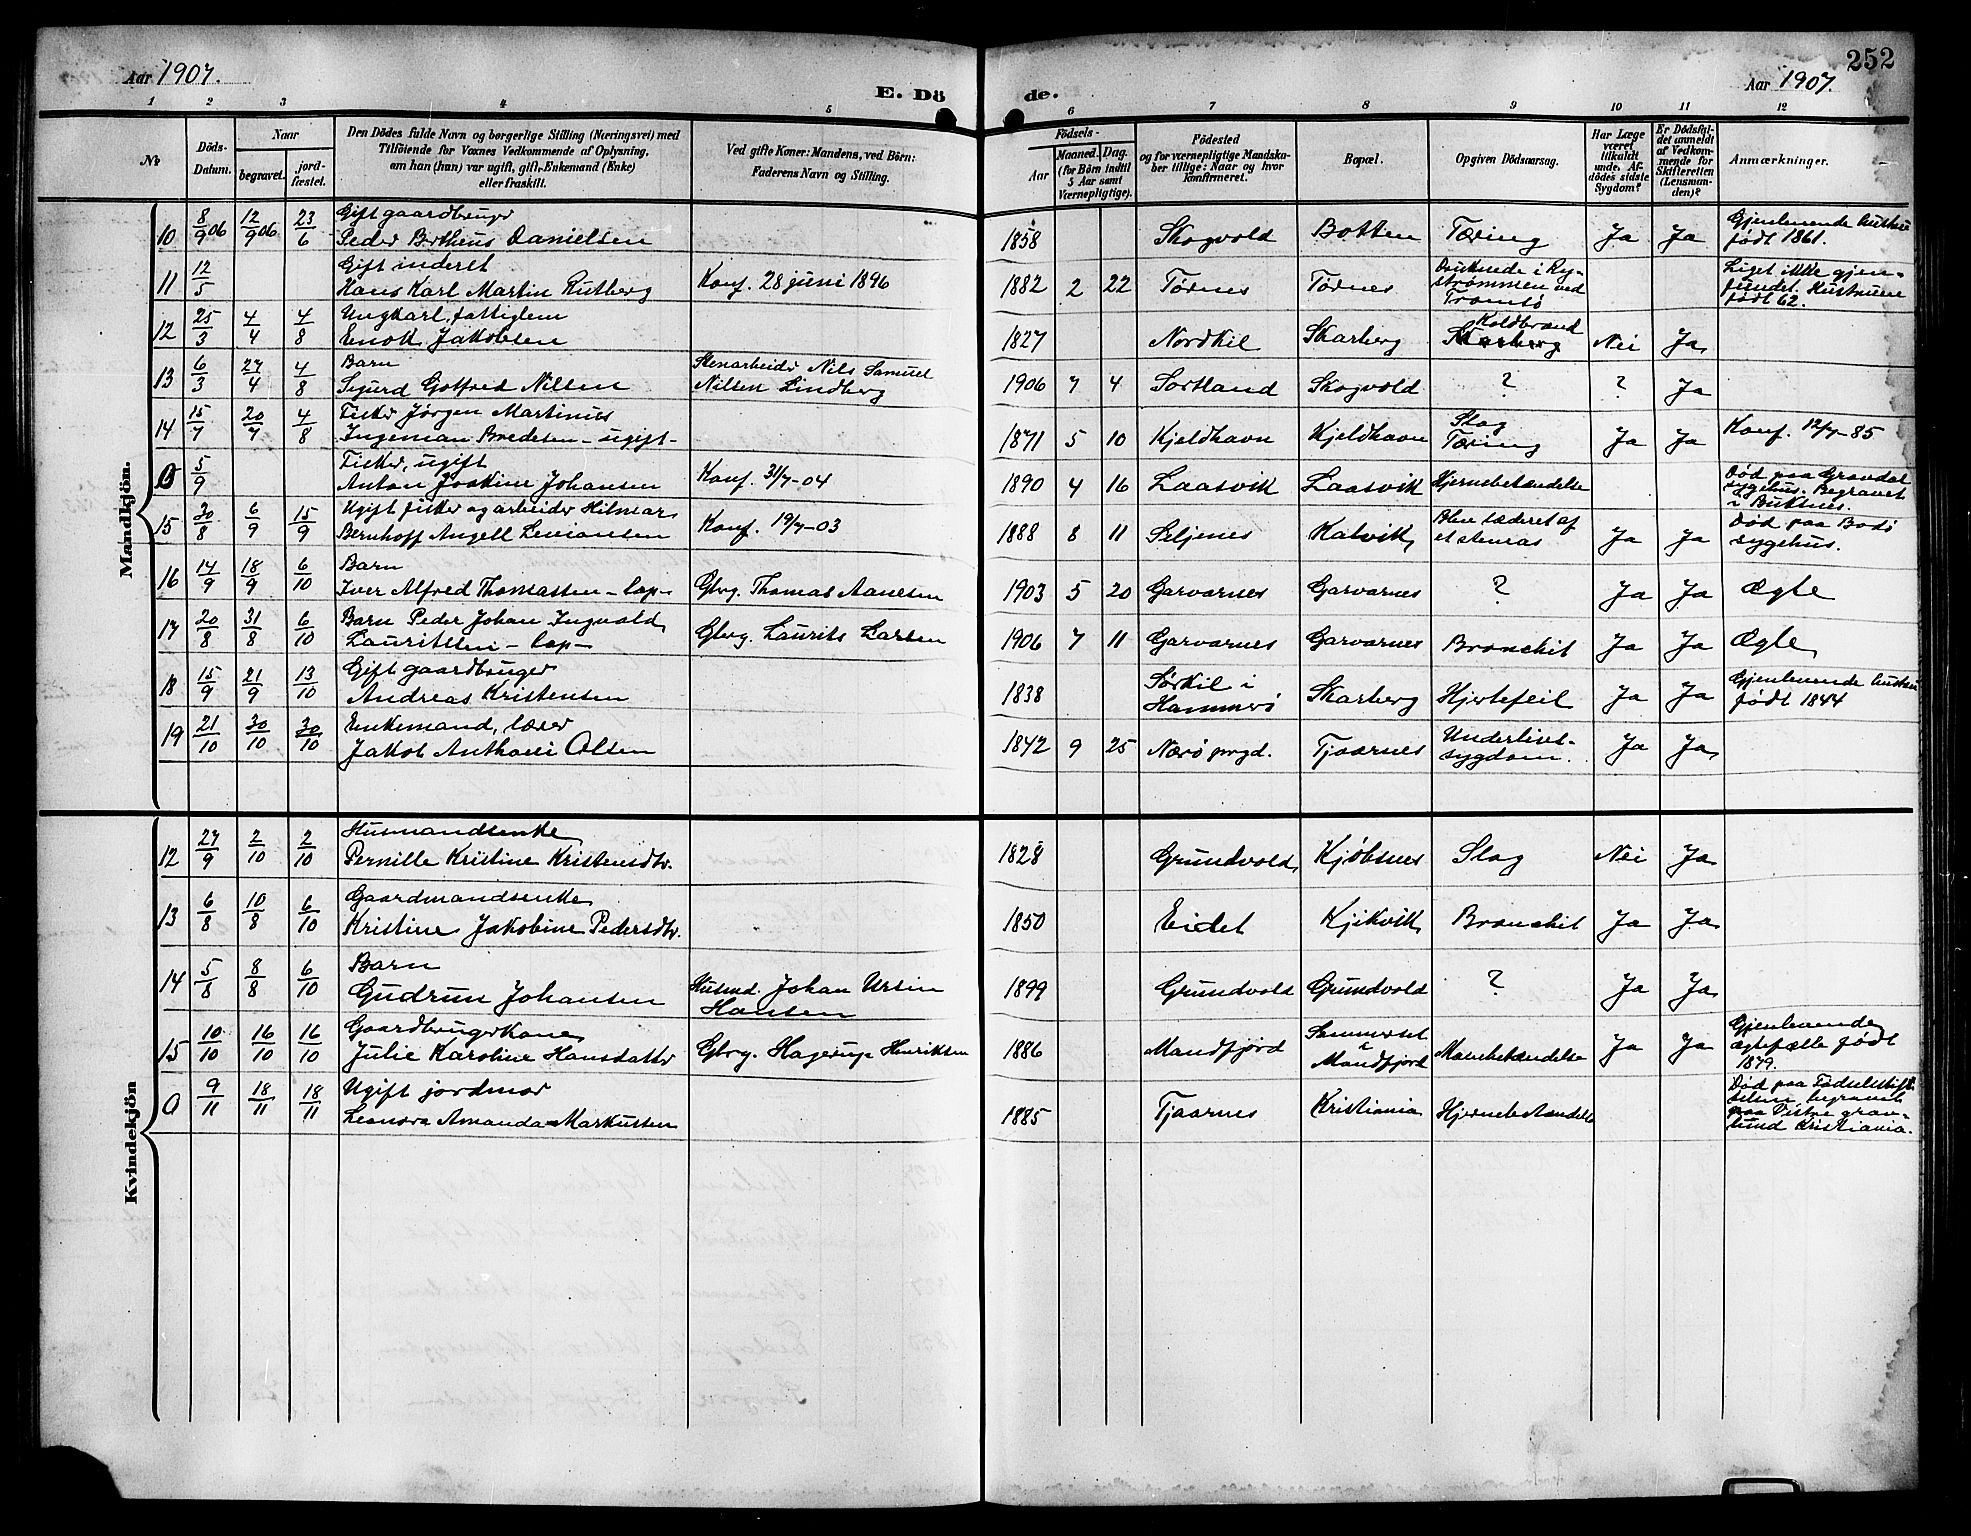 252
Aar 1907.
E. Dö
de.
Aar 1907.
1 2 3 4 5 6 7 8 9 10 11 12
No
Döds-
Datum.
Naar
begravet.
jord-
fæstet.
Den Dödes fulde Navn og borgerlige Stilling (Næringsvei) med
Tilföiende for Voxnes Vedkommende af Oplysning,
om han (hun) var ugift, gift, Enkemand (Enke)
eller fraskilt.
Ved gifte Koner: Mandens, ved Börn:
Faderens Navn og Stilling.
Födsels-
Aar
Maaned. Dag.
(for Börn indtil
5 Aar samt
Værnepligtige).
Födested
og for værnepligtige Mandska-
ber tillige: Naar og hvor
konfirmeret.
Bopæl.
Opgiven Dödsaarsag.
Har Læge
været
tilkaldt
unde. Af-
dödes sidste
Sygdom?
Er Dödsfal-
det anmeldt
af Vedkom-
mende for
Skifteretten
(Lensman-
den)?
Anmærkninger.
Mandkjön.
10 8/9 06 12/9 06 23/6 Gift gaardbruger
Peder Bertheus Danielsen 1858 Skogvold Botten Tæring Ja Ja Gjenlevende hustru
født 1861.
11 12/5 Gift inderst
Hans Karl Martin Rutberg Konf. 28 juni 1896 1882 2 22 Tørnes Tørnes Druknede i Ry-
strømmen ved
Tromsø Liget ikke gjen-
fundet. Hustruen
født 62.
12 25/3 4/4 4/8 Ungkarl, fattiglem
Enok Jakobsen 1827 Nordkil Skarberg Skarberg Koldbrand Nei Ja
13 6/3 27/4 4/8 Barn
Sigurd Gotfred Nilsen Stenarbeider Nils Samuel
Nilsen Lindberg 1906 7 4 Sortland Skogvold ? ? Ja
14 15/7 20/7 4/8 Fisker Jørgen Martinus
Ingeman Bredesen - ugift - 1871 5 10 Kjeldhavn Kjeldhavn Slag
Tæring Ja Ja Konf. 12/7-85
0 5/9 Fisker, ugift
Anton Joakine Johansen Konf. 31/7-04 1890 4 16 Laasvik Laasvik Hjernebetændelse Død paa Gravdal
sygehus. Begravet
i Buksnes.
15 30/8 6/9 15/9 Ugift fisker og arbeider Hilmar
Bernhoff Angell Konf. 19/7-03 1888 8 11 Seljenes Kalvik Blev læderet af
et stenras Ja Ja Død paa Bodø
sygehus.
16 14/9 18/9 6/10 Barn
Iver Alfred Thomassen - lap - Gbrg. Thomas Aanesen 1903 5 20 Garvarnes Garvarnes ? Ja Ja Ægte
17 20/8 31/8 6/10 Barn Peder Johan Ingvald
Lauritssen - lap - Gbrg. Laurits Larsen 1906 7 11 Garvarnes Garvarnes Bronchit Ja Ja Ægte
18 15/9 21/9 13/10 Gift gaardbruger
Andreas Kristensen 1838 Sørkil i
Hammerø Skarberg Hjertefeil Ja Ja Gjenlevende hustru
født 1844
19 21/10 30/10 30/10 Enkemand, lærer
Jakob Anthoni Olsen 1842 9 25 Nærø prgd. Tjaarnes Underlivs-
sygdom. Ja Ja
Kvindekjön
12 27/9 2/10 2/10 Husmandsenke
Pernille Kristine Kristensdtr. 1828 Grundvold Kjøbsnes Slag Nei Ja
13 6/8 10/8 6/10 Gaardmandsenke
Kristine Jakobine Pedersdtr. 1850 Eidet Kjikvik Bronchit Ja Ja
14 5/8 8/8 6/10 Barn
Gudrun Johansen Husmd. Johan Ursin
Hansen 1899 Grundvold Grundvold ? Ja Ja
15 10/10 16/10 16/10 Gaardbrugerkone
Julie Karoline Hansdatter Gbrg. Hagerup Henriksen 1886 Mandfjord Sommerset
i
Mandfjord Mavebetændelse Ja Ja Gjenlevende
ægtefælle født
1879.
0 9/11 18/11 18/11 Ugift jordmor
Leonora Amanda Markussen 1885 Tjaarnes Kristiania Hjernebetændelse Død paa Fødselsstif-
telsen begravet
paa Vestre grav-
lund Kristiania.